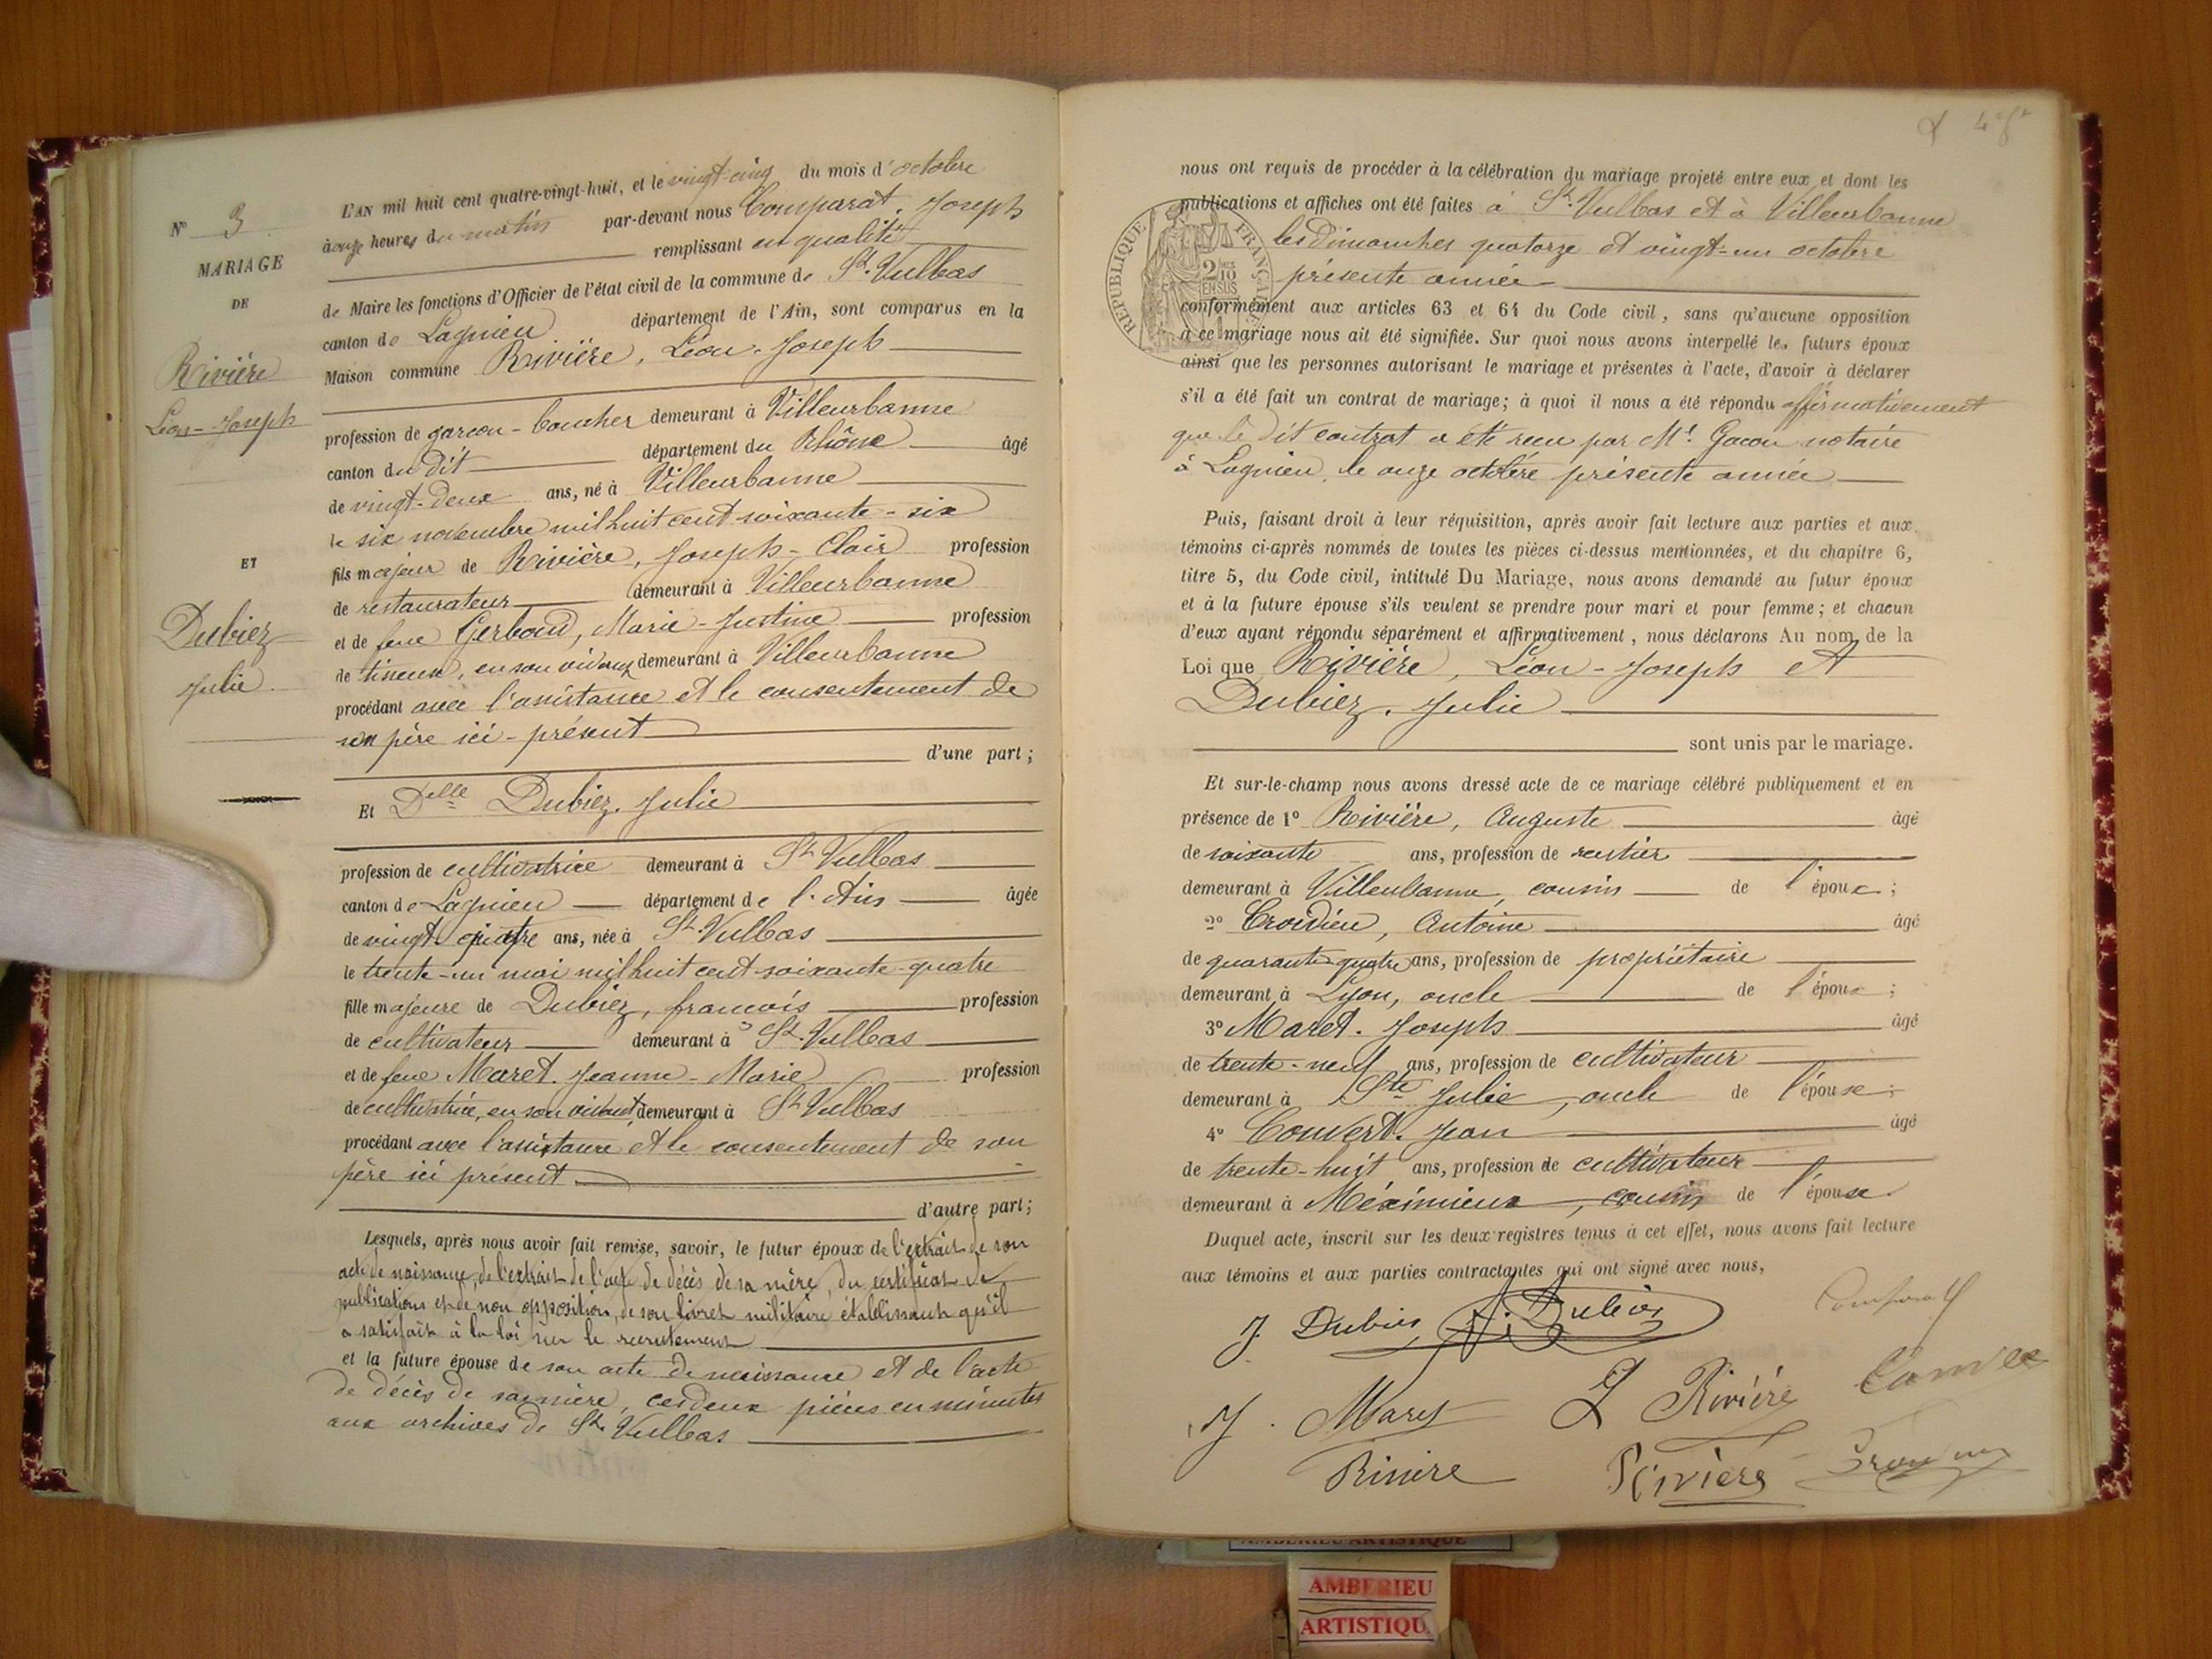 N° 3
MARIAGE
DE
Rivière
Léon-Joseph
ET
Dubiez
Julie
L'AN mil huit cent quatre-vingt-huit, et le vingt-cinq du mois d'octobre
à onze heures du matin par-devant nous Comparat, Joseph
remplissant en qualité
de Maire les fonctions d'Officier de l'état civil de la commune de St. Vulbas
canton de Lagnieu département de l'Ain, sont comparus en la
Maison commune Rivière, Léon-Joseph
profession de garcon-boucher demeurant à Villeurbanne
canton du dit département du Rhône âgé
de vingt-deux ans, né à Villeurbanne
le six novembre mil huit cent soixante-six
fils majeur de Rivière, Joseph-Clair profession
de restaurateur demeurant à Villeurbanne
et de feue Gerboud, Marie-Justine profession
de tisseuse, en son vivant demeurant à Villeurbanne
procédant avec l'assistance et le consentement de
son père ici-présent
d'une part;
Et Delle Dubiez, Julie
profession de cultivatrice demeurant à St Vulbas
canton de Lagnieu département de l'Ain âgée
de vingt quatre ans, née à St. Vulbas
le trente-un mai mil huit cent soixante-quatre
fille majeure de Dubiez, francois profession
de cultivateur demeurant à St. Vulbas
et de feue Maret. Jeanne-Marie profession
de cultivatrice, en son vivant, demeurant à St Vulbas
procédant avec l'assistance et le consentement de son
père ici présent
d'autre part;
Lesquels, après nous avoir fait remise, savoir, le futur époux de l'extrait de son
acte de naissance, de l'extrait de l'acte de décès de sa mère, du certificat de
publications et de non opposition, de son livret militaire établissant qu'il
a satisfait à la loi sur le recrutement
et la future épouse de son acte de naissance et de l'acte
de décès de sa mère, ces deux pièces en minutes
aux archives de St. Vulbas
nous ont requis de procéder à la célébration du mariage projeté entre eux et dont les
publications et affiches ont été faites à St. Vulbas et à Villeurbanne
les dimanches quatorze et vingt-un octobre
présente année
REPUBLIQUE FRANÇAISE
2/10 EN SUS
conformément aux articles 63 et 64 du Code civil, sans qu'aucune opposition
à ce mariage nous ait été signifiée. Sur quoi nous avons interpellé les futurs époux
ainsi que les personnes autorisant le mariage et présentes à l'acte, d'avoir à déclarer
s'il a été fait un contrat de mariage; à quoi il nous a été répondu affirmativement
que le dit contrat a été recu par Mt. Gacon notaire
à Lagnieu, le onze octobre présente année
Puis, faisant droit à leur réquisition, après avoir fait lecture aux parties et aux
témoins ci-après nommés de toutes les pièces ci-dessus mentionnées, et du chapitre 6,
titre 5, du Code civil, intitulé Du Mariage, nous avons demandé au futur époux
et à la future épouse s'ils veulent se prendre pour mari et pour femme; et chacun
d'eux ayant répondu séparément et affirmativement, nous déclarons Au nom de la
Loi que Rivière, Léon-Joseph et
Dubiez, Julie
sont unis par le mariage.
Et sur-le-champ nous avons dressé acte de ce mariage célébré publiquement et en
présence de 1° Rivière, Auguste âgé
de soixante ans, profession de rentier
demeurant à Villeurbanne, cousin de l'époux;
2° Croidieu, Antoine âgé
de quarante-quatre ans, profession de propriétaire
demeurant à Lyon, oncle de l'époux;
3° Maret. Joseph âgé
de trente-neuf ans, profession de cultivateur
demeurant à Ste Julie, oncle de l'épouse;
4° Convert. Jean âgé
de trente-huit ans, profession de cultivateur
demeurant à Méximieux, cousin de l'épouse.
Duquel acte, inscrit sur les deux registres tenus à cet effet, nous avons fait lecture
aux témoins et aux parties contractantes qui ont signé avec nous,
J. Dubiez Dubiez Comparat
J. Maret L Rivière
Riviere Rivière
AMBERIEU ARTISTIQUE
AMBERIEU
ARTISTIQU